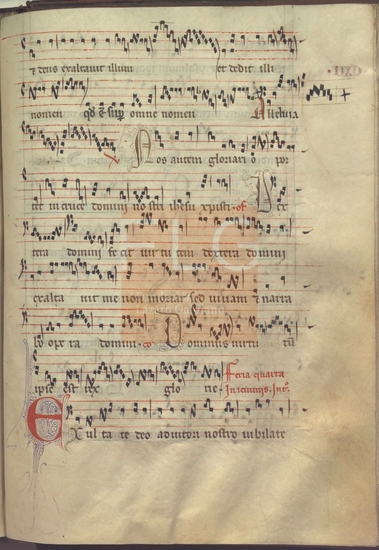 & deus exaltavit illum et dedit illi
nomen qd e sup omne nomen Alleluia
Nos autem gloriari o por
tet in cruce domini nostri ihesu xpisti of Dex
tera domini fecit virtutem dextera domini
exalta vit me non moriar sed vivam & narra
bo opera domini co Dominus virtu tū
ipse est rex glo rie Feria quarta
In ieiuniis
Exul ta te deo adiutori nostro iubilate